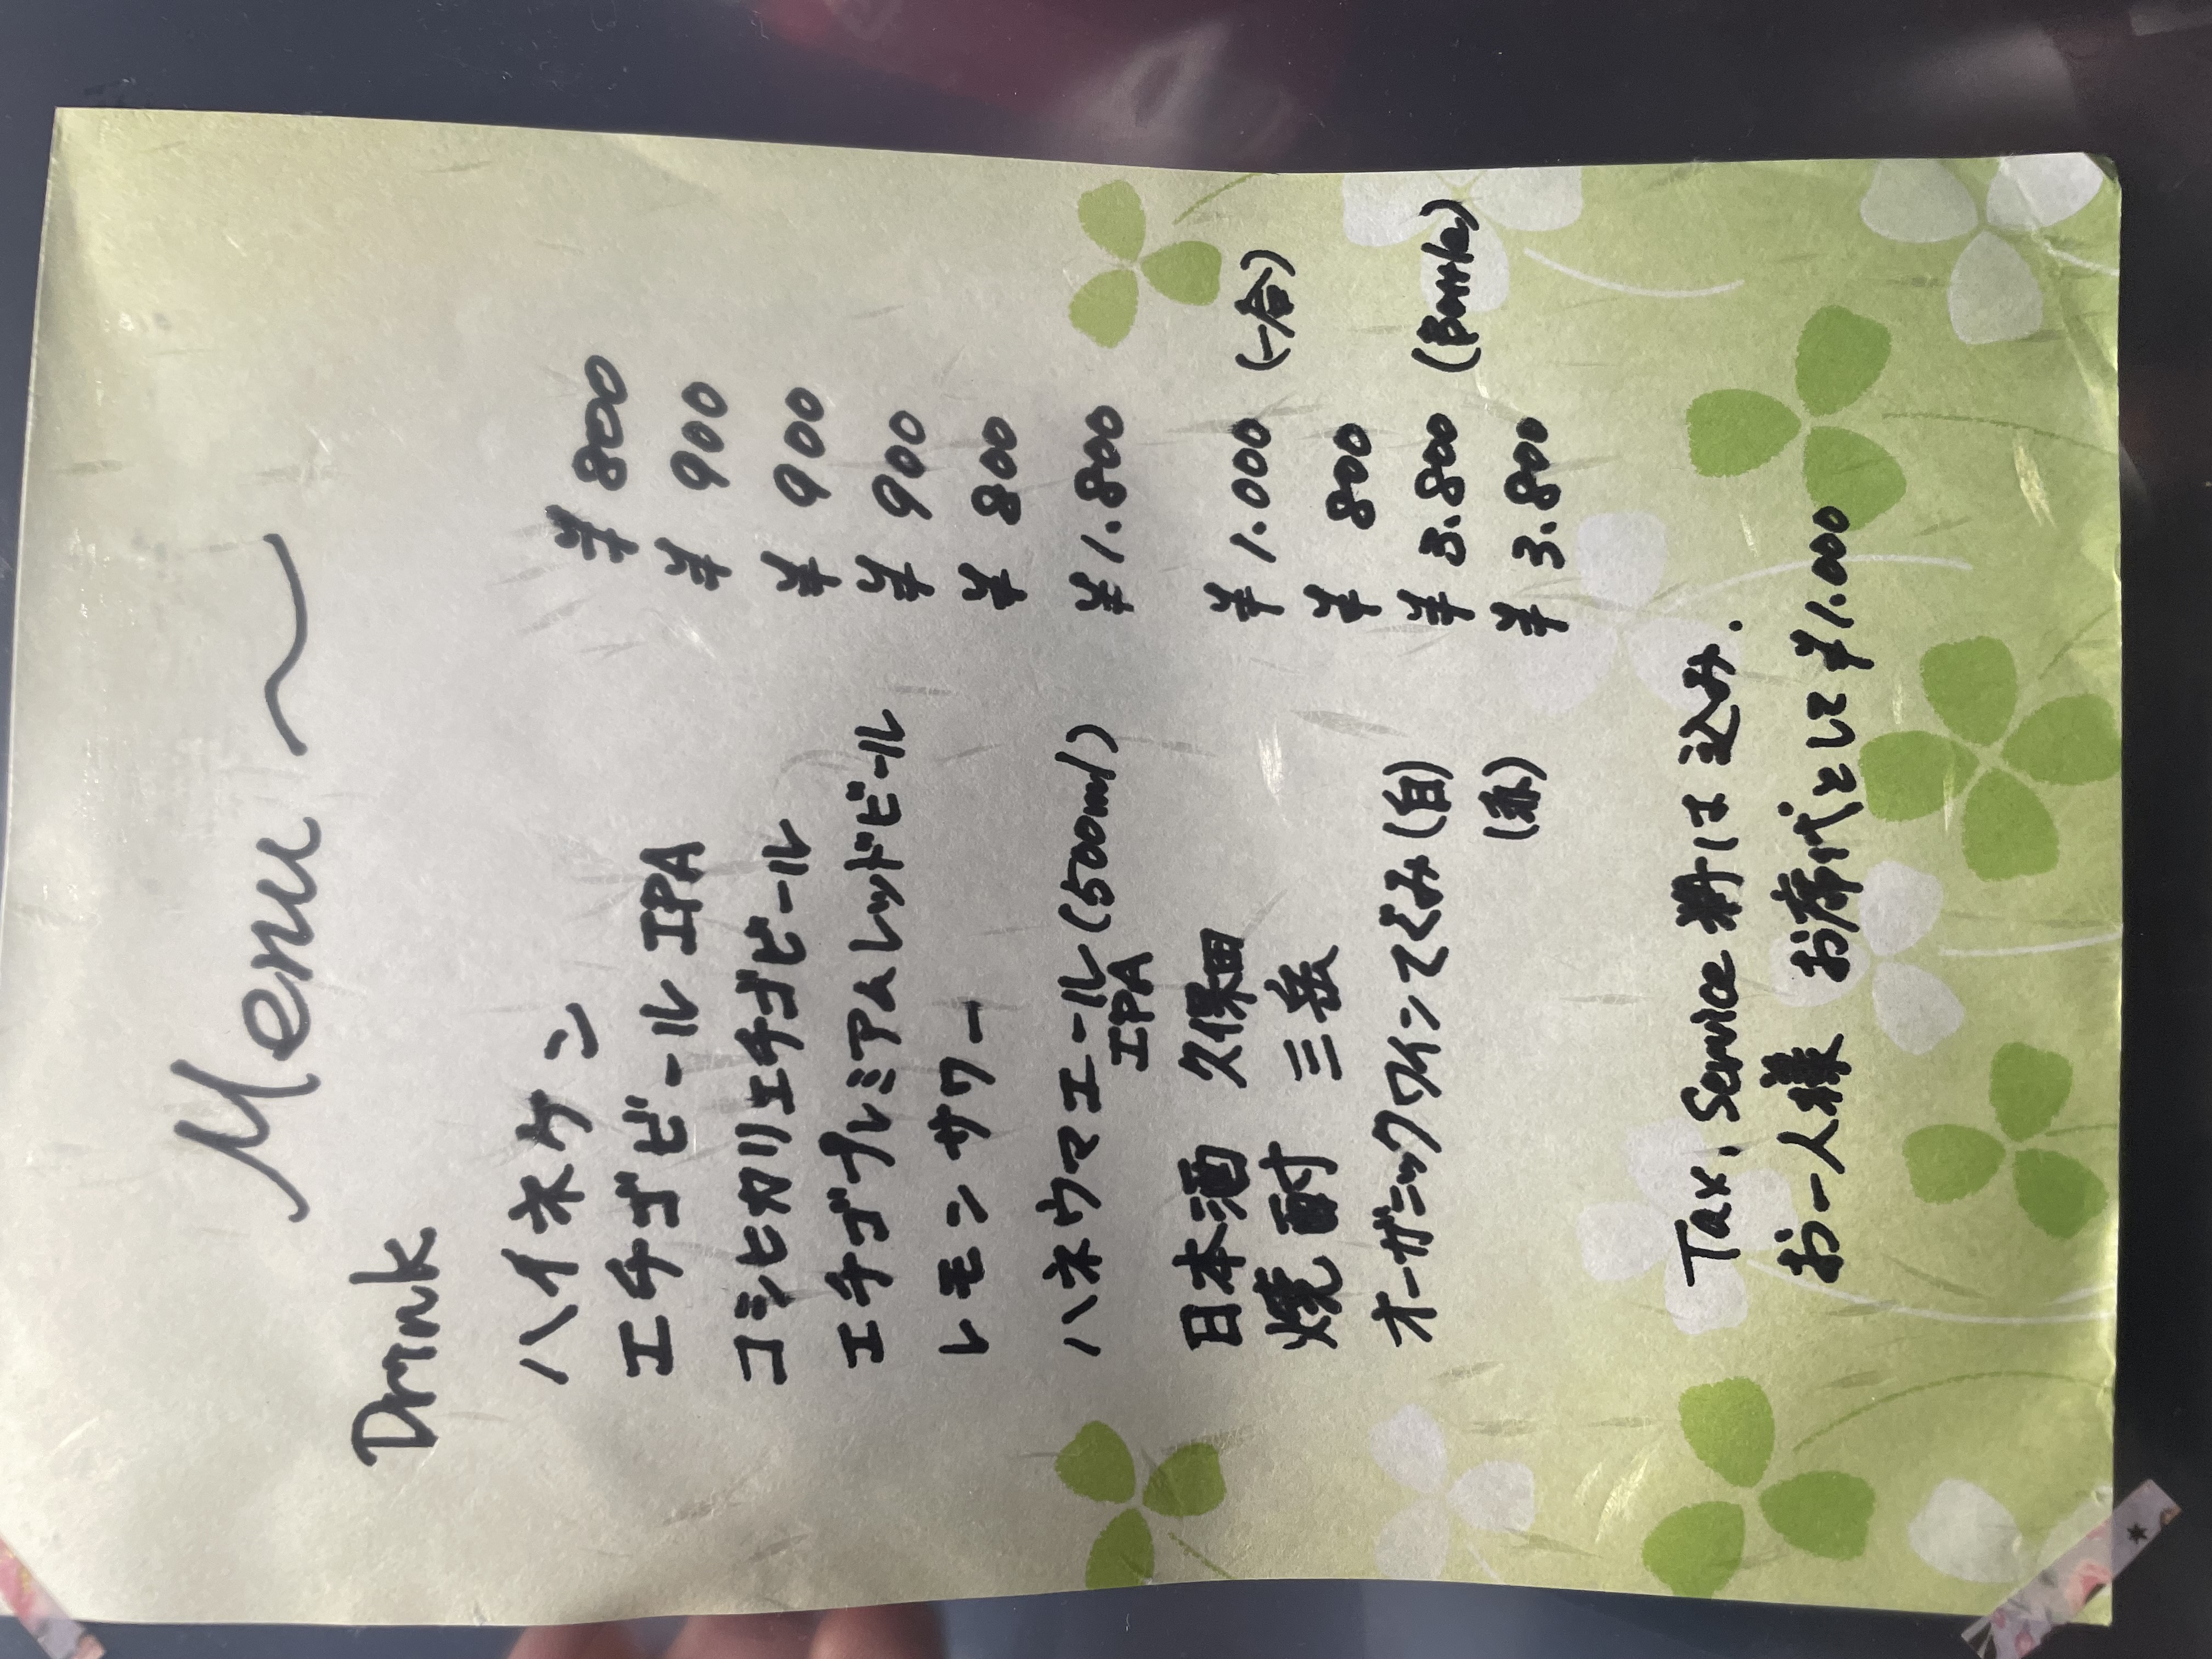 Menu ～
Drink
ハイネケン ¥ 800
エチゴビール IPA ¥ 900
コシヒカリエチゴビール ¥ 900
エチゴプレミアムレッドビール ¥ 900
レモンサワー ¥ 800
ハネウマエール(500ml) ¥1.800
IPA
日本酒 久保田 ¥ 1.000 (一合)
焼酎 三岳 ¥ 800
オーガニックワインてぐみ(白) ¥ 3.800 (Bottle)
(赤) ¥ 3.800
Tax, Service 料は込み.
お一人様 お席代として ¥1.000